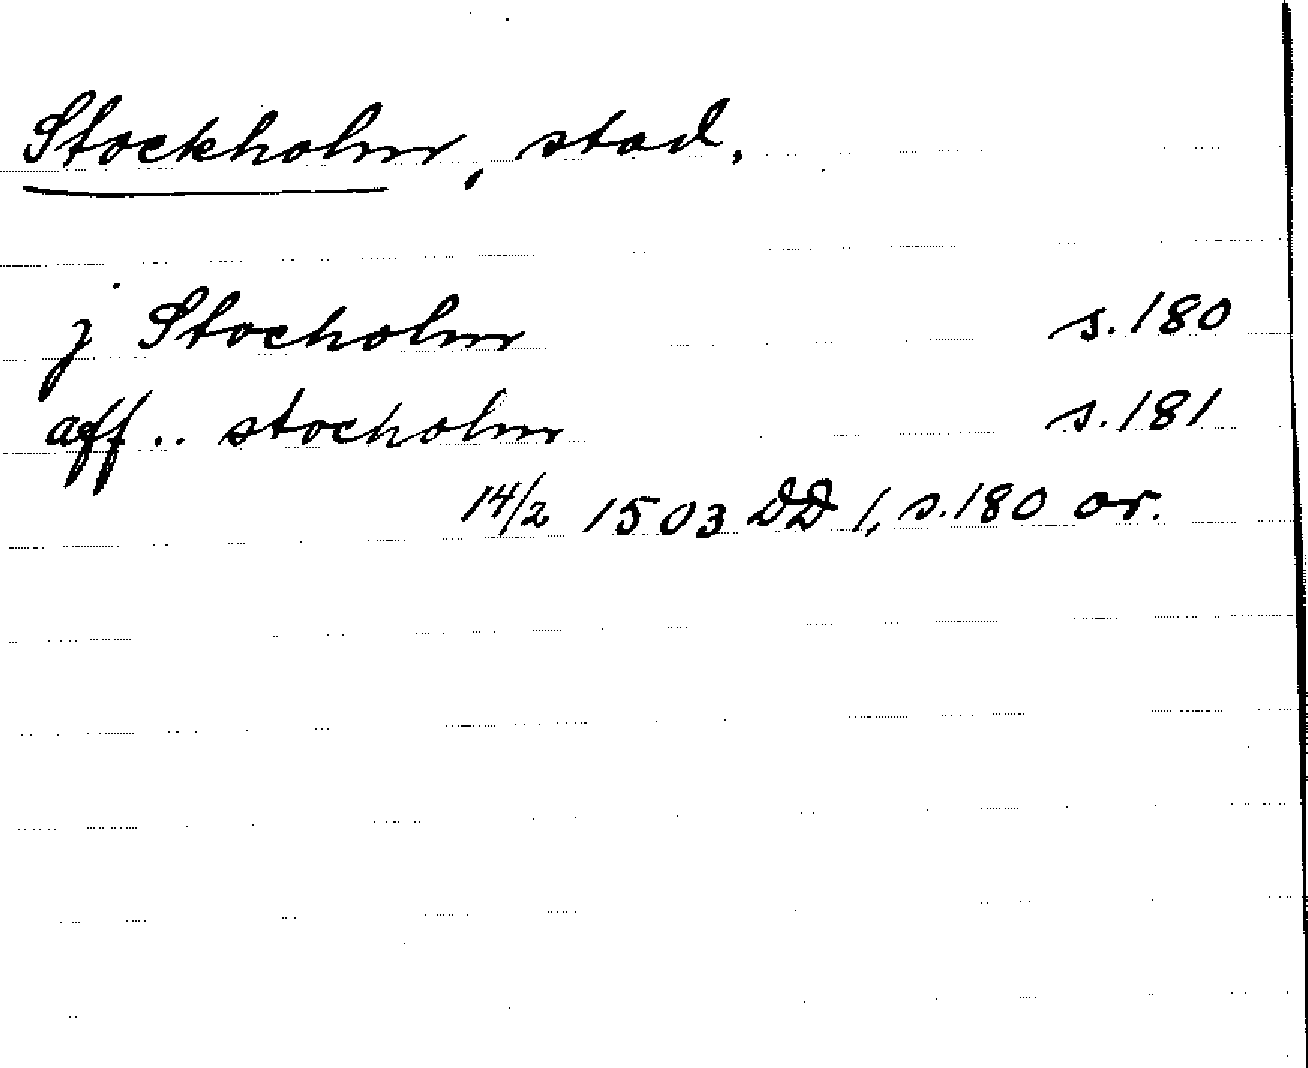 Stockholm, stad.
j Stocholm s. 180
aff .. stocholm s. 181
14/2 1503 DD 1, s. 180 or.